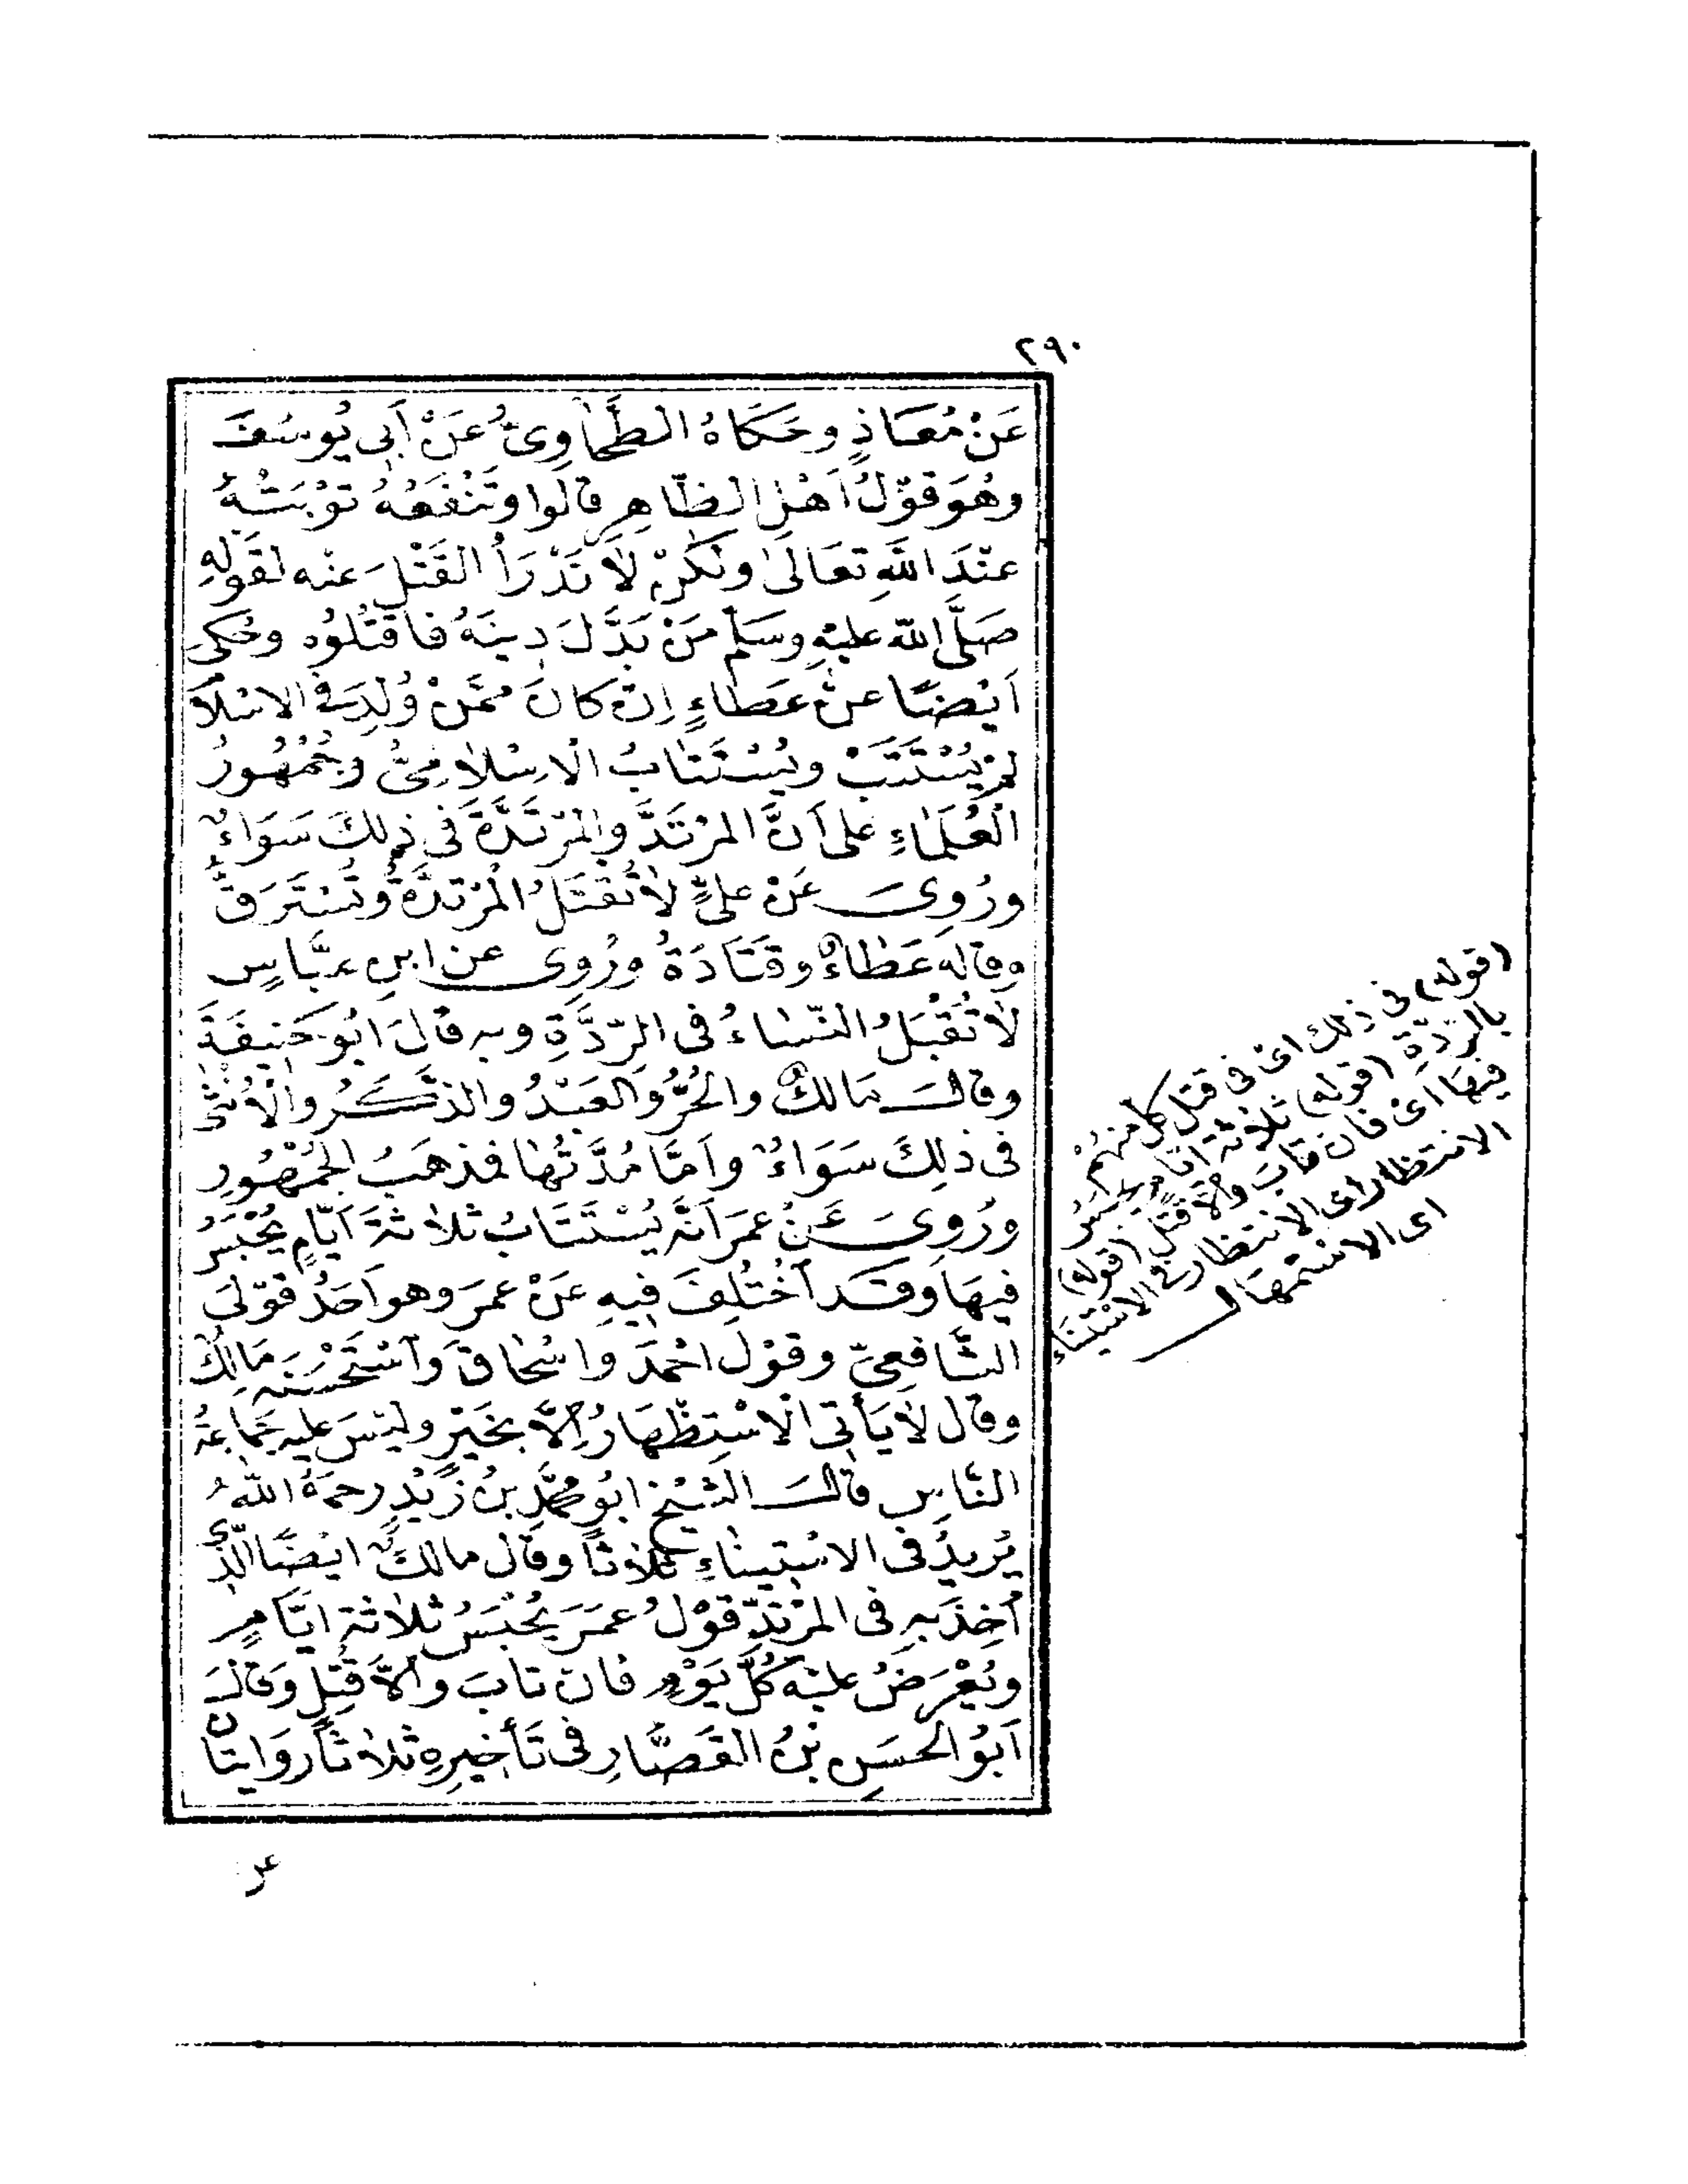 ٢٩٠
عَنْ مُعَاذٍ وحَكَاهُ الطَّحَاوِىُّ عَنْ أَبِى يُوسُفَ
وهُوَ قَوْلُ اَهْلِ الظَّاهِرِ قالوا وتَنْفَعُهُ تَوْبَتُهُ
عنْدَ اللهِ تَعَالَى ولكنْ لَا تَدْرَأُ القَتْلَ عنْه لقَوْلِهِ
صَلَّى الله عليْهِ وسَلَّم مَنْ بَدَّلَ دِينَهُ فاقْتُلُوُه وحُكِىَ
اَيْضًا عن عَطَاءٍ اِنْ كانَ مِمَّنْ وُلِدَ فى الاسْلَامِ
لم يُسْتَتَبْ ويُسْتَتَابُ الْاِسْلَامِىُّ وجُمْهُورُ
الْعُلَمَاءِ على اَنَّ المرْتَدَّ والمرْتَدَّةَ فى ذلِكَ سَوَاءٌ
ورُوِىَ عَنْ علىٍّ لَا تُقْتَلُ الْمُرْتَدَّةُ وتُسْتَرَقُّ
وقاله عَطَاءٌ وقَتَادَةُ ورُوِى عن ابنِ عبَّاسٍ
لَا تُقْبَلُ النّسَاءُ فى الرّدَّةِ وبه قالَ ابُو حَنِيفَةَ
وقالَ مَالكٌ والحُرُّ والعَبْدُ والذَّكَرُ والْاُنْثَى
فى ذلِكَ سَوَاءٌ واَمَّا مُدَّتُهَا فمذهَبُ الجُمْهُورِ
ورُوِىَ عَنْ عمَرَ اَنَّهُ يُسْتَتَابُ ثلاثةَ اَيَّامٍ يُحْبَسُ
فيهَا وَقَد آخْتُلِفَ فيهِ عَنْ عمَرَ وهو اَحَدُ قَوْلَىِ
الشَّافعىّ وقوْلُ احْمَدَ واسْحَاقَ وآسْتَحْسَنَه مَالِكٌ
وقال لَا يَأْتى الْاسْتِظْهَارُ اِلَّا بخَيْرٍ وليْسَ عليه جَمَاعَةُ
النَّاسِ قالَ الشَّيْخ ابُو محَمَّدِ بنُ زَيْدٍ رحمَهُ اللهُ
يُرِيدُ فى الاسْتِيناءِ ثلاثاً وقال مالكٌ ايْضًا الَّذِى
آخِذُ بهِ فى المرْتَدِّ قَوْلُ عمَرَ يُحْبَسُ ثلَاثةَ ايَّامٍ
ويُعْرَضُ عليْه كُلَّ يَوْمٍ فان تابَ واِلَّا قُتِلَ وَقالَ
اَبُو الحسَنِ بْنُ القَصَّارِ فى تَأْخِيرِهِ ثلَاثاً رِوَايتَانِ
عن
(قوله) فى ذلك اى فى قتل كل منهم
بالرّدّةِ (قوله) ثلاثة ايّام يحبسُ
فيهَا اى فان تابَ والّا قُتل (قوله)
الانتظار اى الانتظار فى الاسْتِينَاءِ
اى الاستمهَال